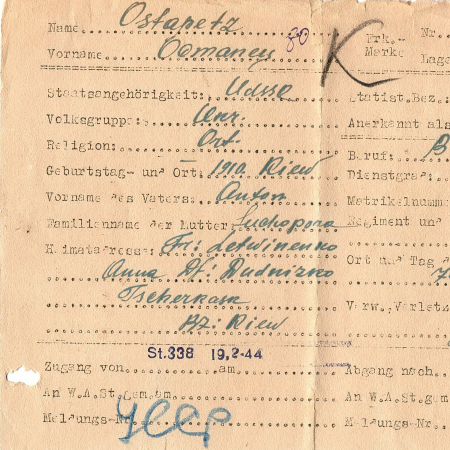 Name Ostapetz 80 K Erk.- Marke Nr.
Vorname Lage
Staatsangehörigkeit: Udssr Statist.Bez.:
Volksgruppe: Ukr. Anerkannt als
Religion: Ort. Beruf: B
Geburtstag- und Ort: 1910 Kiew Dienstgrad:
Vorname des Vaters: Anton Matrikelnumme
Familienname der Mutter: Suchopora Regiment und
Heimatadresse: Fr: Letwinenko
Anna Df: Rudnizko Ort und Tag d
Tscherkom
Bz: Kiew Verw. Verletz
St.338 19.2-44
Zugang von am Abgang nach
An W.A.St.gem.am An W.A.St.gem
Meldungs-Nr. Meldungs-Nr.